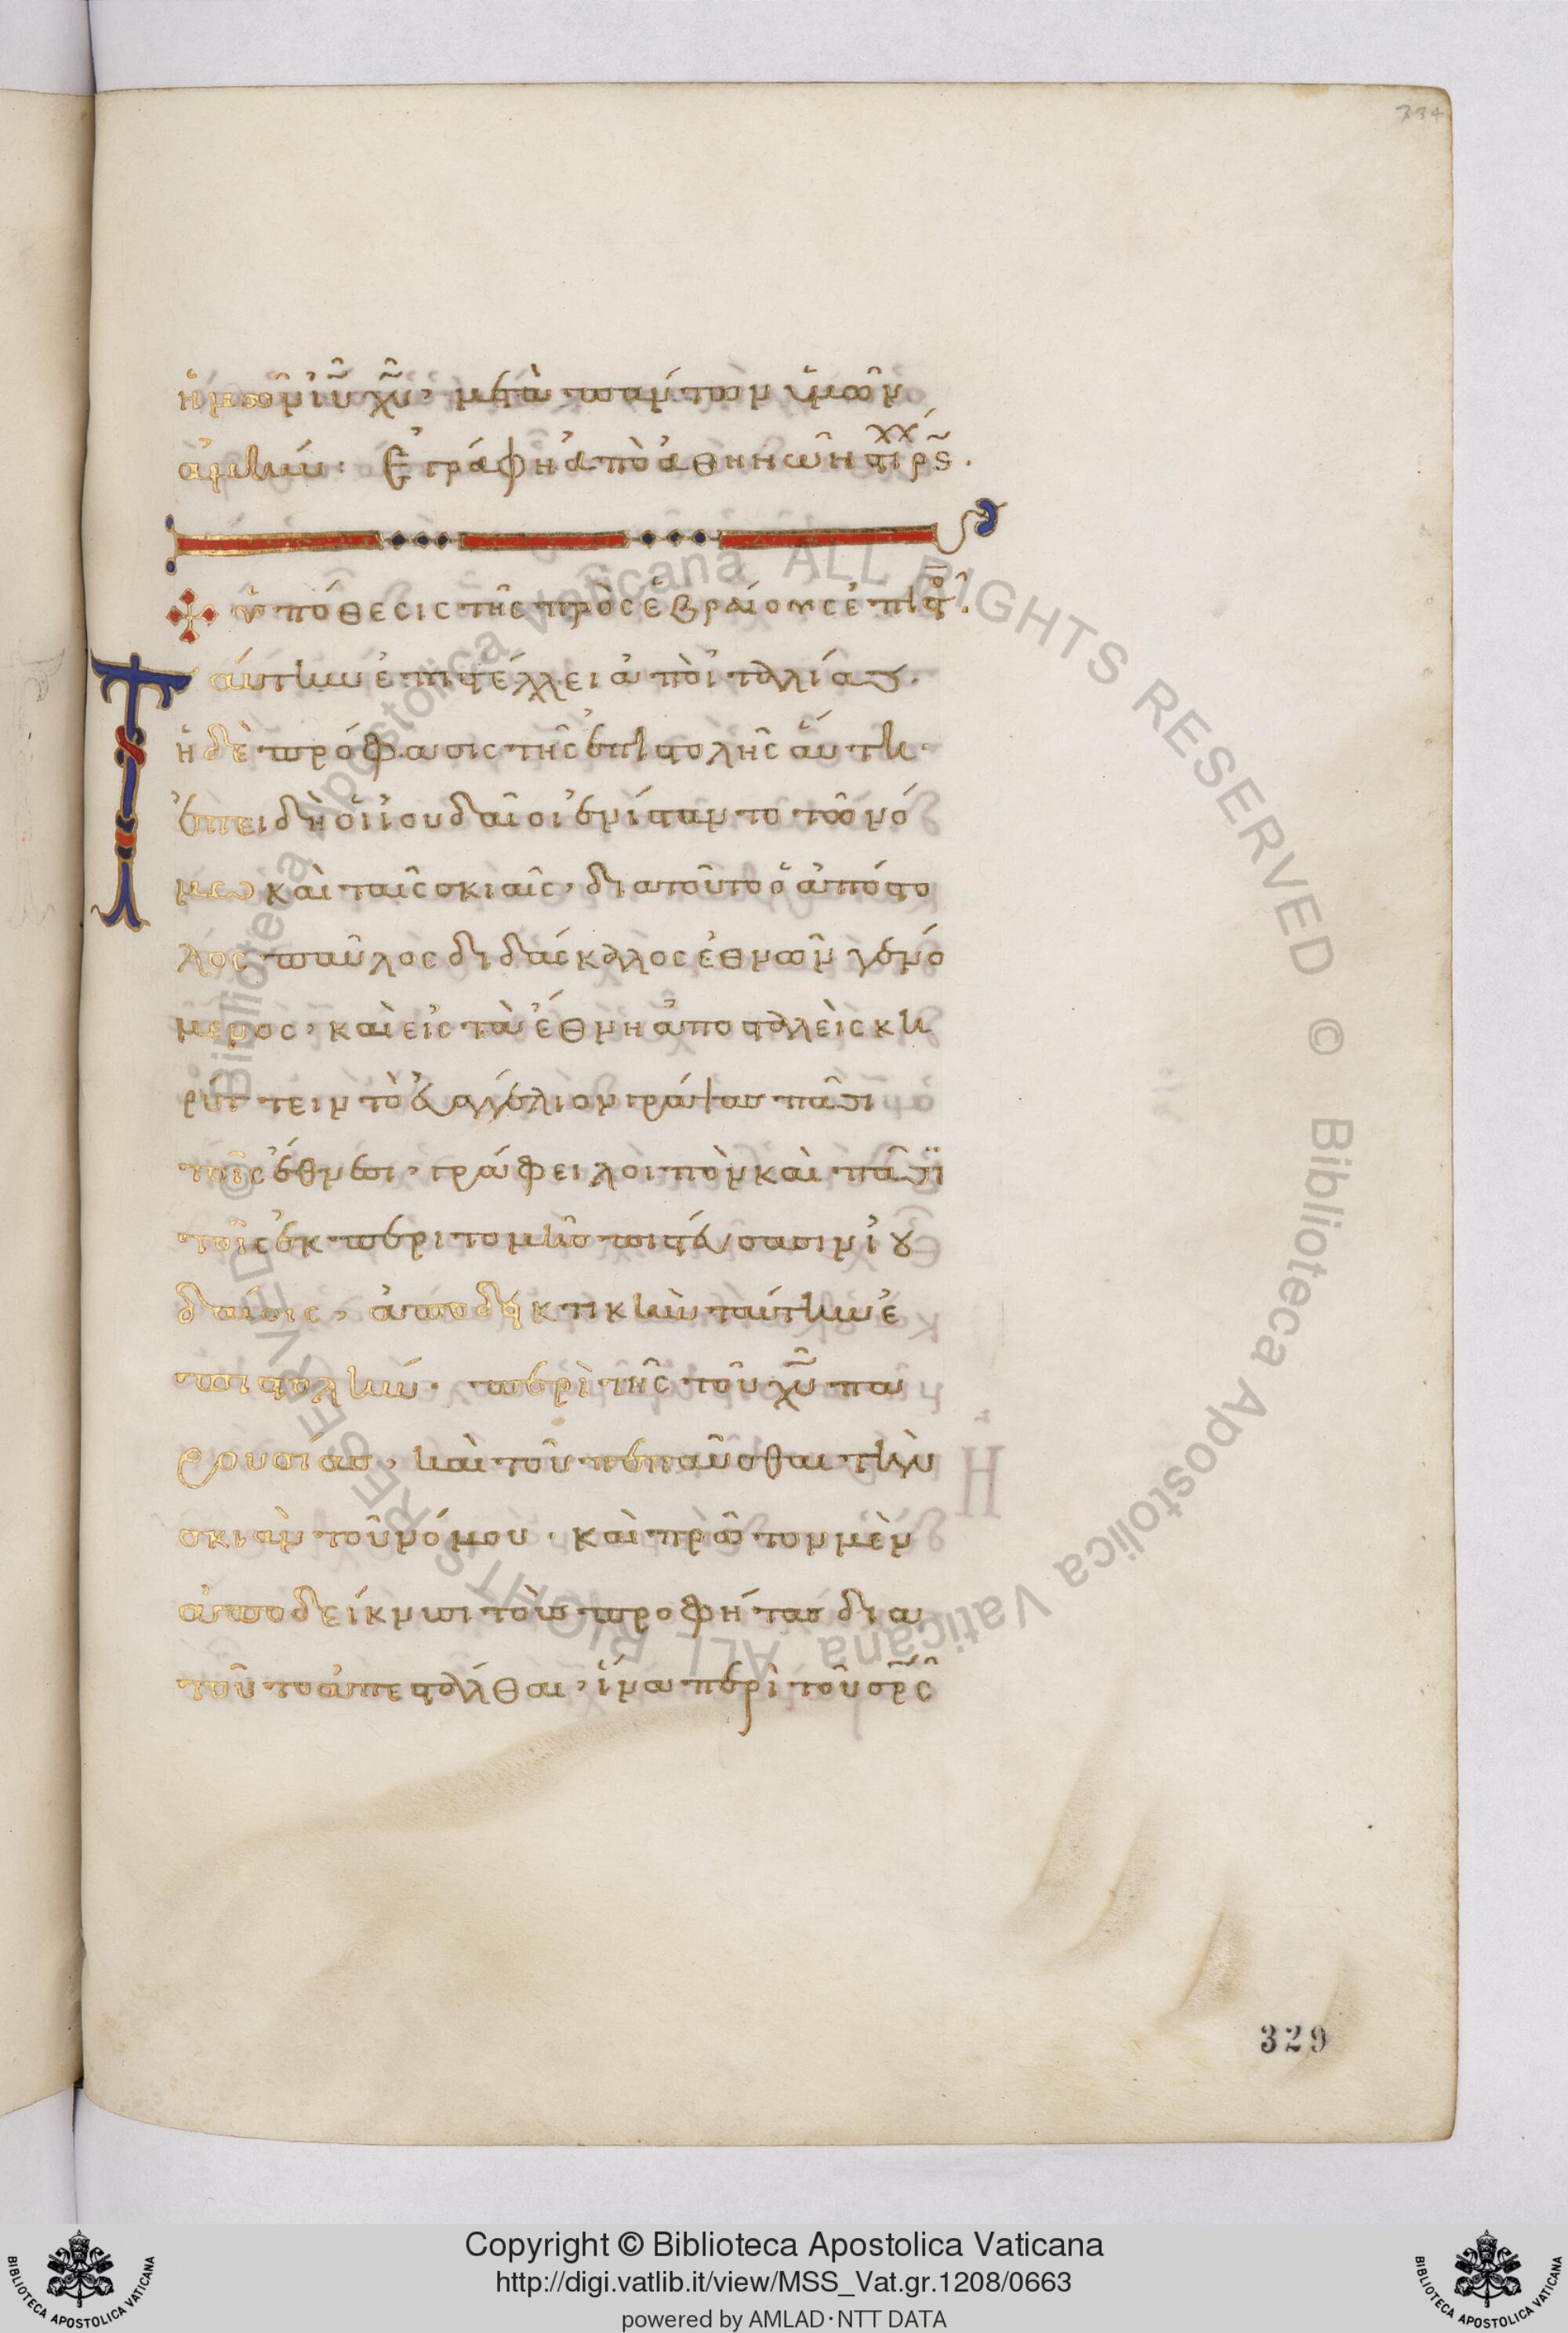 334
ἡμῶν ἰῦ χῦ, μετὰ πάντων ὑμῶν
ἀμήν: Ἐγράφη ἀπὸ ἀθηνῶν στίχ ρς.
ὑπόθεσις τῆς πρὸς ἑβραίους ἐπιστο.
Ταύτην ἐπιστέλλει ἀπὸ ἰταλίας.
ἡ δὲ πρόφασις τῆς ἐπιστολῆς αὕτη.
ἐπειδὴ οἱ ἰουδαῖοι ἐνίσταντο τῶ νό
μω καὶ ταῖς σκιαῖς, διατοῦτο ὁ ἀπόστο
λος παῦλος διδάσκαλος ἐθνῶν γενό
μενος, καὶ εἰς τὰ ἔθνη ἀποσταλεὶς κη
ρύττειν τὸ εὐαγγέλιον γράψας πᾶσι
τοῖς ἔθνεσι, γράφει λοιπὸν καὶ πᾶσϊ
τοῖς ἐκ περιτομῆς πιστεύσασιν ἰου
δαίοις, ἀποδεικτικὴν ταύτην ἐ
πιστολήν. περὶ τῆς τοῦ χῦ πα
ρουσίας, καὶ τοῦ πεπαῦσθαι τὴν
σκιὰν τοῦ νόμου. καὶ πρῶτον μὲν
ἀποδείκνυσι τοὺς προφήτας δια
τοῦτο ἀπεστάλθαι, ἵνα περὶ τοῦ σρς
329
© Biblioteca Apostolica Vaticana ALL RIGHTS RESERVED
© Biblioteca Apostolica Vaticana ALL RIGHTS RESERVED
Copyright © Biblioteca Apostolica Vaticana
http://digi.vatlib.it/view/MSS_Vat.gr.1208/0663
powered by AMLAD·NTT DATA
BIBLIOTECA APOSTOLICA VATICANA
BIBLIOTECA APOSTOLICA VATICANA